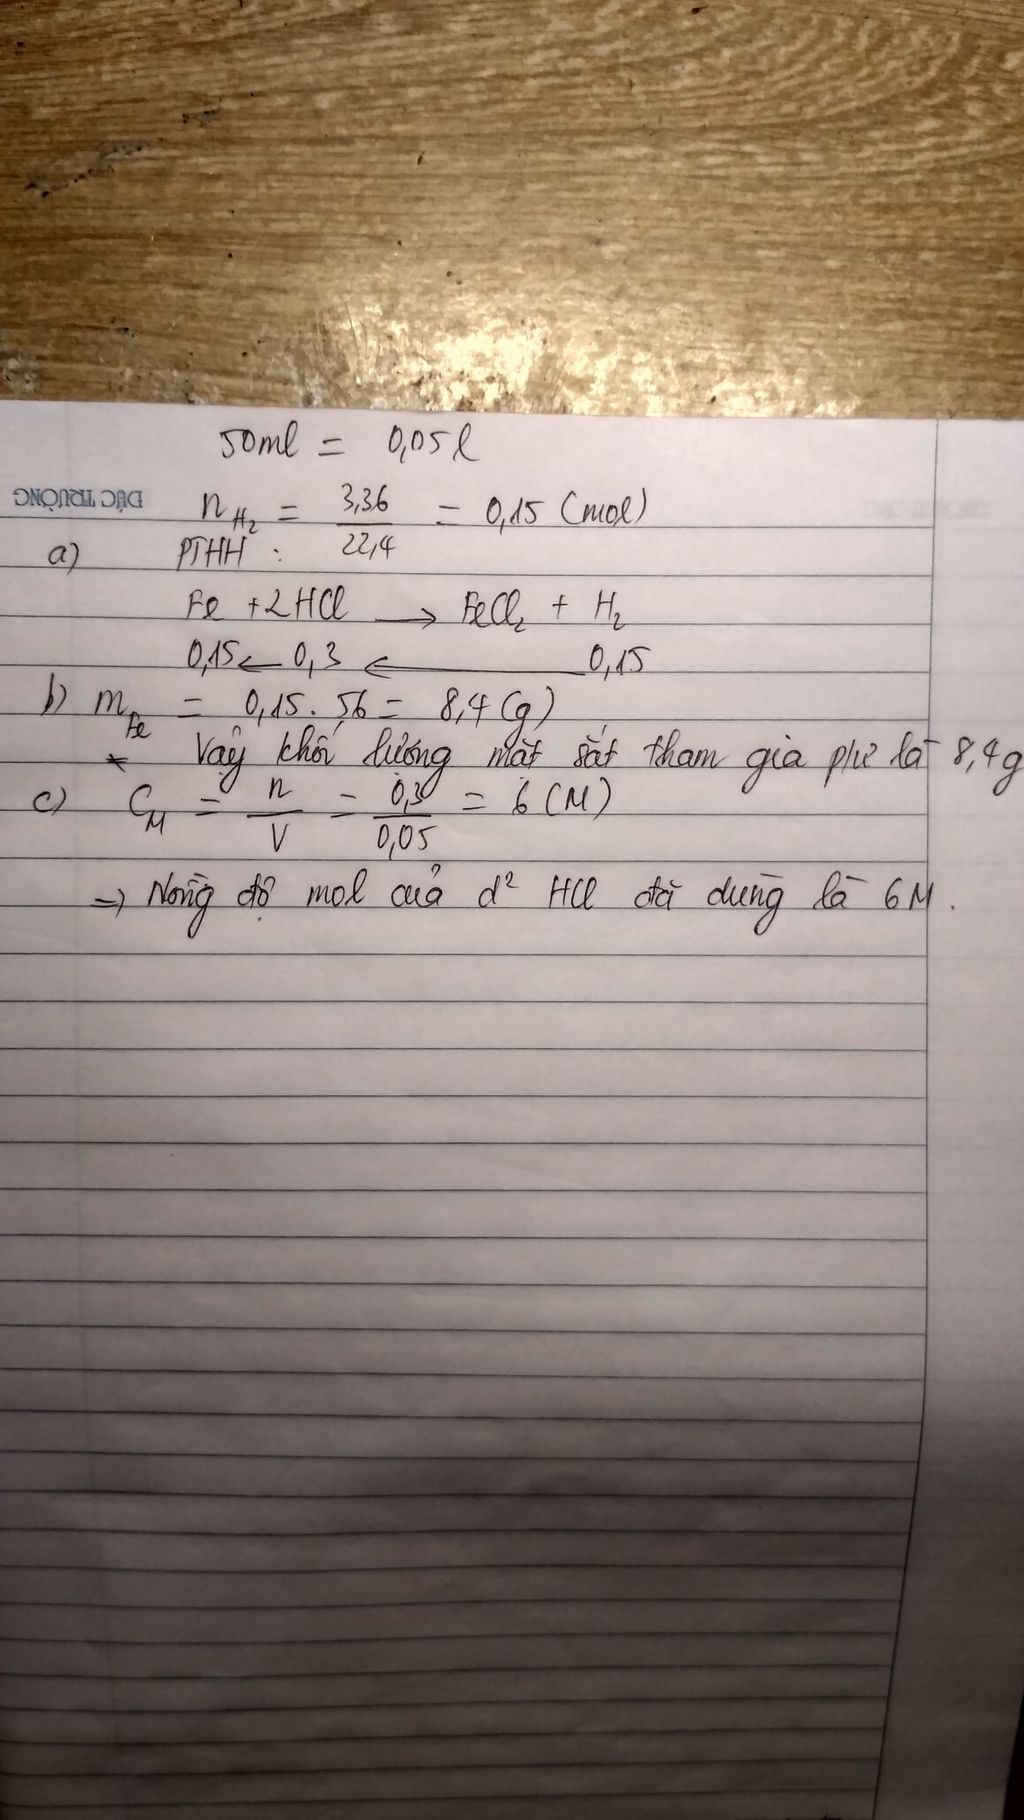 50ml = 0,05l
ĐỨC TRƯỜNG
n H₂ = 3,36 / 22,4 = 0,15 (mol)
a) PTHH :
Fe + 2HCl → FeCl₂ + H₂
0,15 ← 0,3 ← 0,15
b) m Fe = 0,15 . 56 = 8,4 (g)
* Vậy khối lượng mạt sắt tham gia pư là 8,4g
c) C M = n / V = 0,3 / 0,05 = 6 (M)
=> Nồng độ mol của d² HCl đã dùng là 6M.